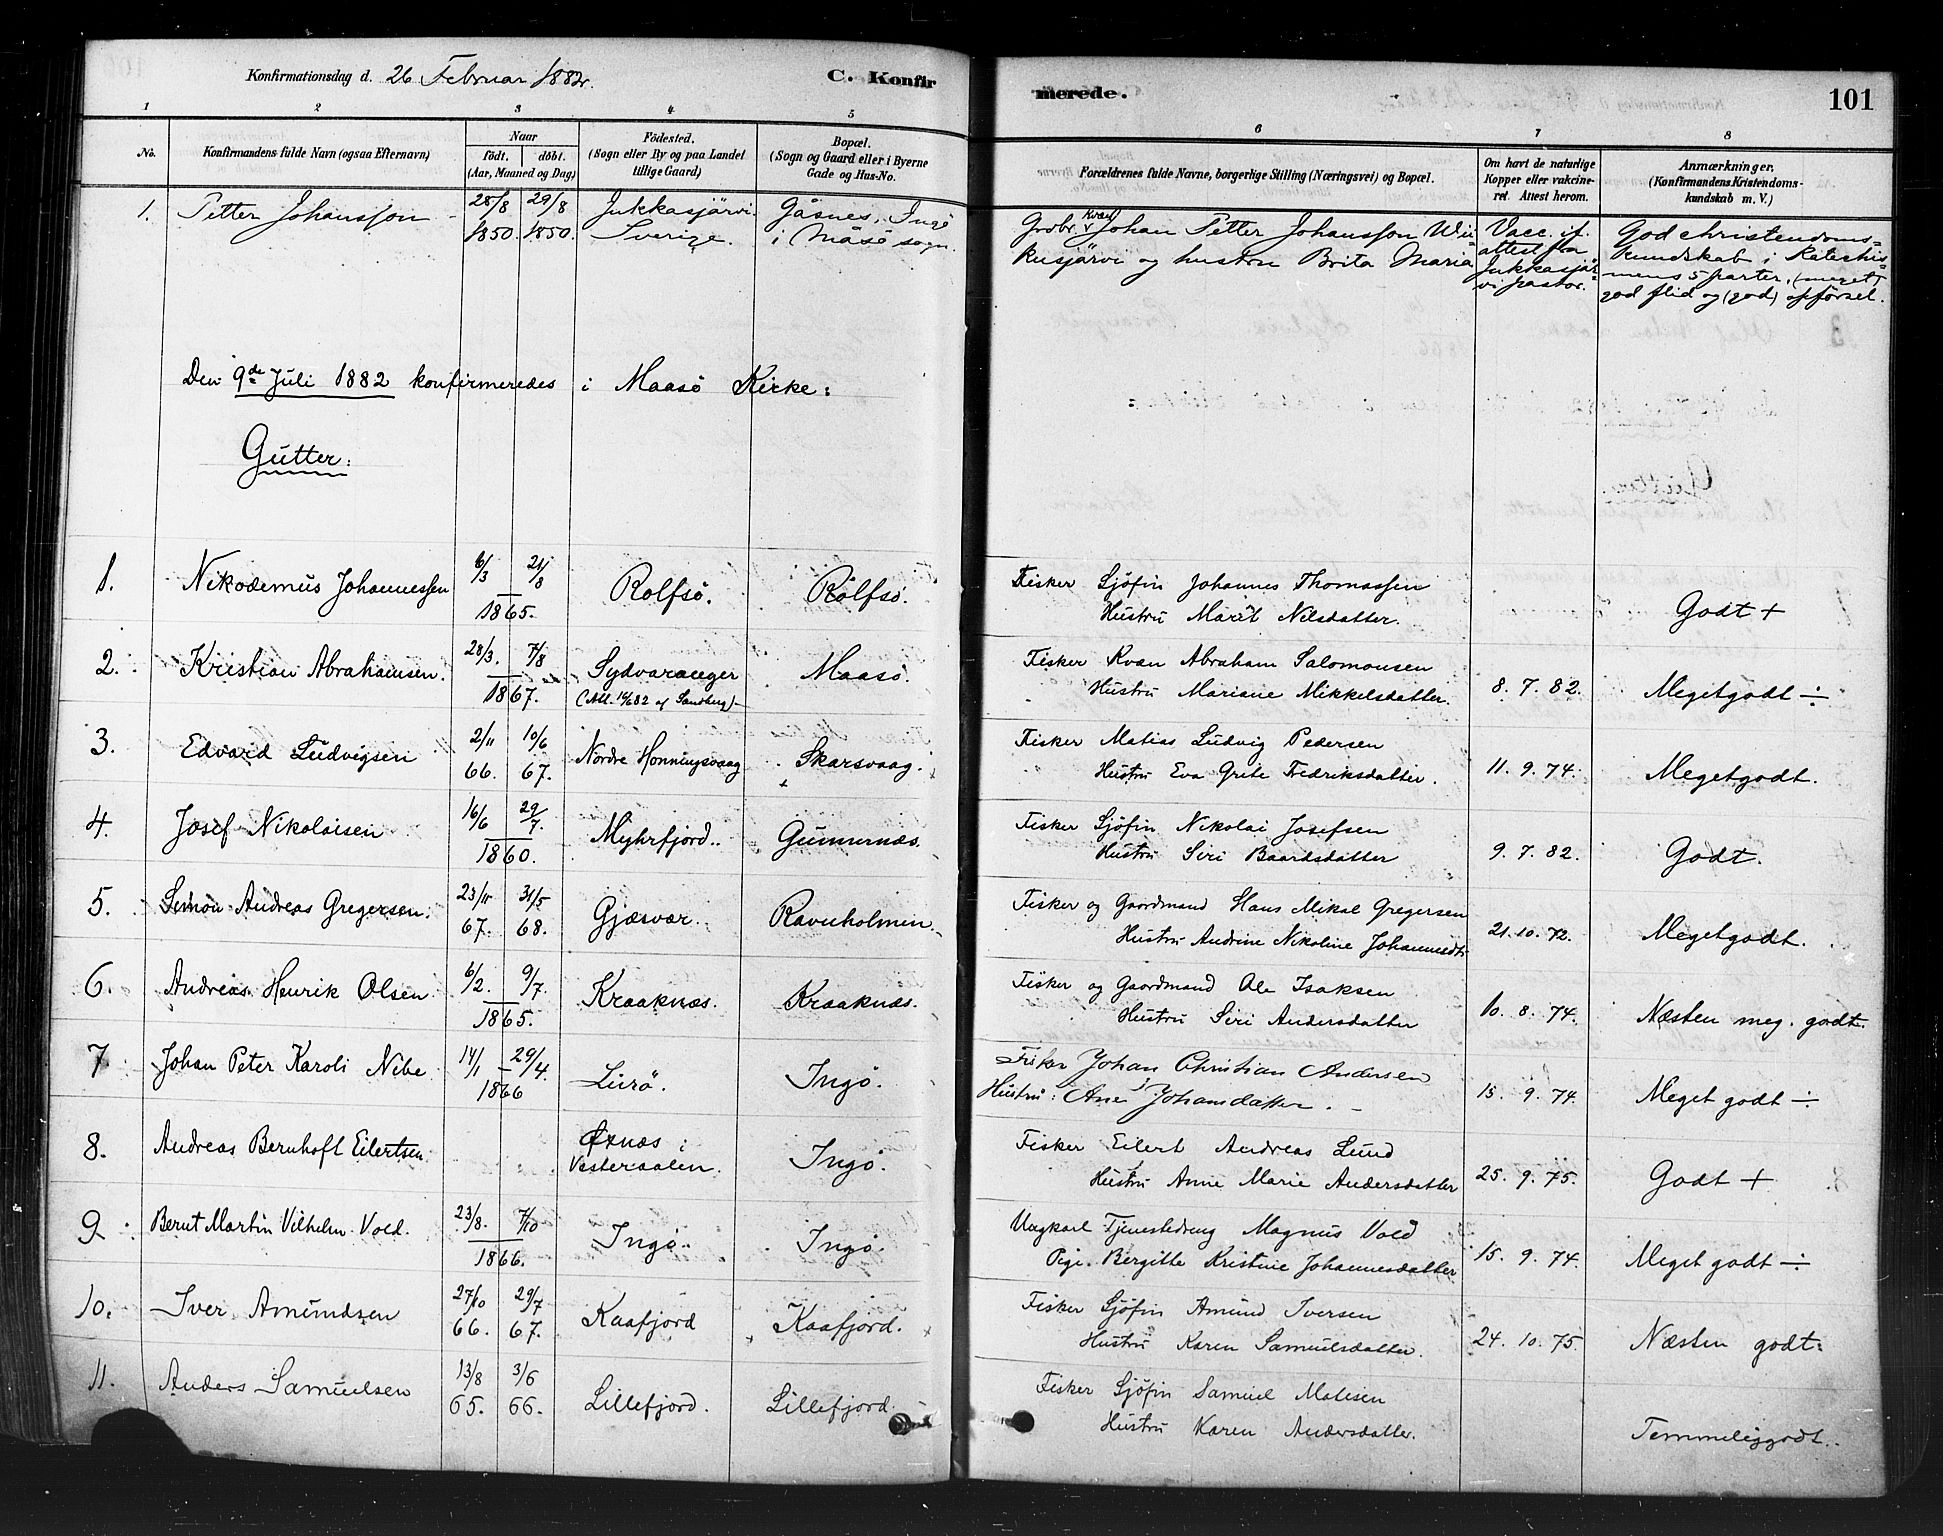 Konfirmationsdag d. 26 Februar 1882.
C. Konfirmerede.
101
1 2 3 4 5 6 7 8
No.
Konfirmandens fulde Navn (ogsaa Efternavn)
Naar
født. døbt.
(Aar, Maaned og Dag)
Fødested.
(Sogn eller By og paa Landet
tillige Gaard)
Bopæl.
(Sogn og Gaard eller i Byerne
Gade og Hus-No.
Forældrenes fulde Navne, borgerlige Stilling (Næringsvei) og Bopæl.
Om havt de naturlige
Kopper eller vakcine-
ret. Attest herom.
Anmærkninger.
(Konfirmandens Kristendoms-
kundskab m. V.)
1. Petter Johansson 28/8 1850. 29/8 1850.
Jukkasjärvi
Sverige.
Gåsnes, Ingö
i Måsö sogn.
Johan Petter Johansson Wii-
kusjärvi og hustru Brita Maria
Vacc. if.
attest fra
Jukkasjär-
vi pastor.
God christendoms-
kundskab i Katechis-
mens 5 parter, (meget)
god flid og (god) opförsel.
Den 9de Juli 1882 konfirmeredes i Maasö Kirke:
Gutter:
1. Nikodemus Johannessen 6/3 21/8 1865. Rolfsö. Rolfsö.
Fisker Sjöfin Johannes Thomassen
Hustru Marit Nilsdatter.
Godt +
2. Kristian Abrahamsen. 28/3. 7/8 1867. Sydvaranger Maasö.
Fisker Kvæn Abraham Salomonsen
Hustru Mariane Mikkelsdatter.
8. 7. 82. Megetgodt ÷
3. Edvard Ludvigsen 2/11 66. 10/6 67. Nordre Honningsvaag Skarsvaag.
Fisker Matias Ludvig Pedersen
Hustru Eva Grite Fredriksdatter.
11. 9. 74. Megetgodt.
4. Josef Nikolaisen 16/6 29/7. 1860. Myhrfjord. Gunnernæs.
Fisker Sjöfin Nikolai Josefsen
Hustru Siri Baardsdatter
9. 7. 82. Godt.
5. Simon Andreas Gregersen. 23/11 67. 31/5 68. Gjæsvær. Ravnholmen.
Fisker og Gaardmand Hans Mikal Gregersen
Hustru Andrine Nikoline Johannesdtr
21. 10. 72. Megetgodt.
6. Andreas Henrik Olsen. 6/2. 9/7. 1865. Kraaknæs. Kraaknæs.
Fisker og Gaardmand Ole Isaksen
Hustru Siri Andersdatter
10. 8. 74. Næsten meg. godt.
7 Johan Peter Karoli Nibe 14/1 29/4. 1866 Lurö. Ingö.
Fisker Johan Christian Andersen
Hustru: Ane Johansdatter.
15. 9. 74. Meget godt ÷
8. Andreas Bernhoft Eilertsen. Øxnæs i
Vesteraalen. Ingö.
Fisker Eilert Andreas Lund
Hustru Anne Marie Andersdatter
25. 9. 75. Godt +
9. Bernt Martin Vilhelm Vold. 23/8. 7/10 1866. Ingö. Ingö.
Ungkarl Tjenestedreng Magnus Vold
Pige Bergitte Kristine Johannesdatter
15. 9. 74. Meget godt ÷
10. Iver Amundsen 27/10 66. 29/7 67. Kaafjord Kaafjord.
Fisker Sjöfin Amund Iversen
Hustru Karen Samuelsdatter.
24. 10. 75. Næsten godt.
11. Anders Samuelsen 13/8 65. 3/6 66. Lillefjord. Lillefjord.
Fisker Sjöfin Samuel Matisen
Hustru Karen Andersdatter.
Temmeliggodt.